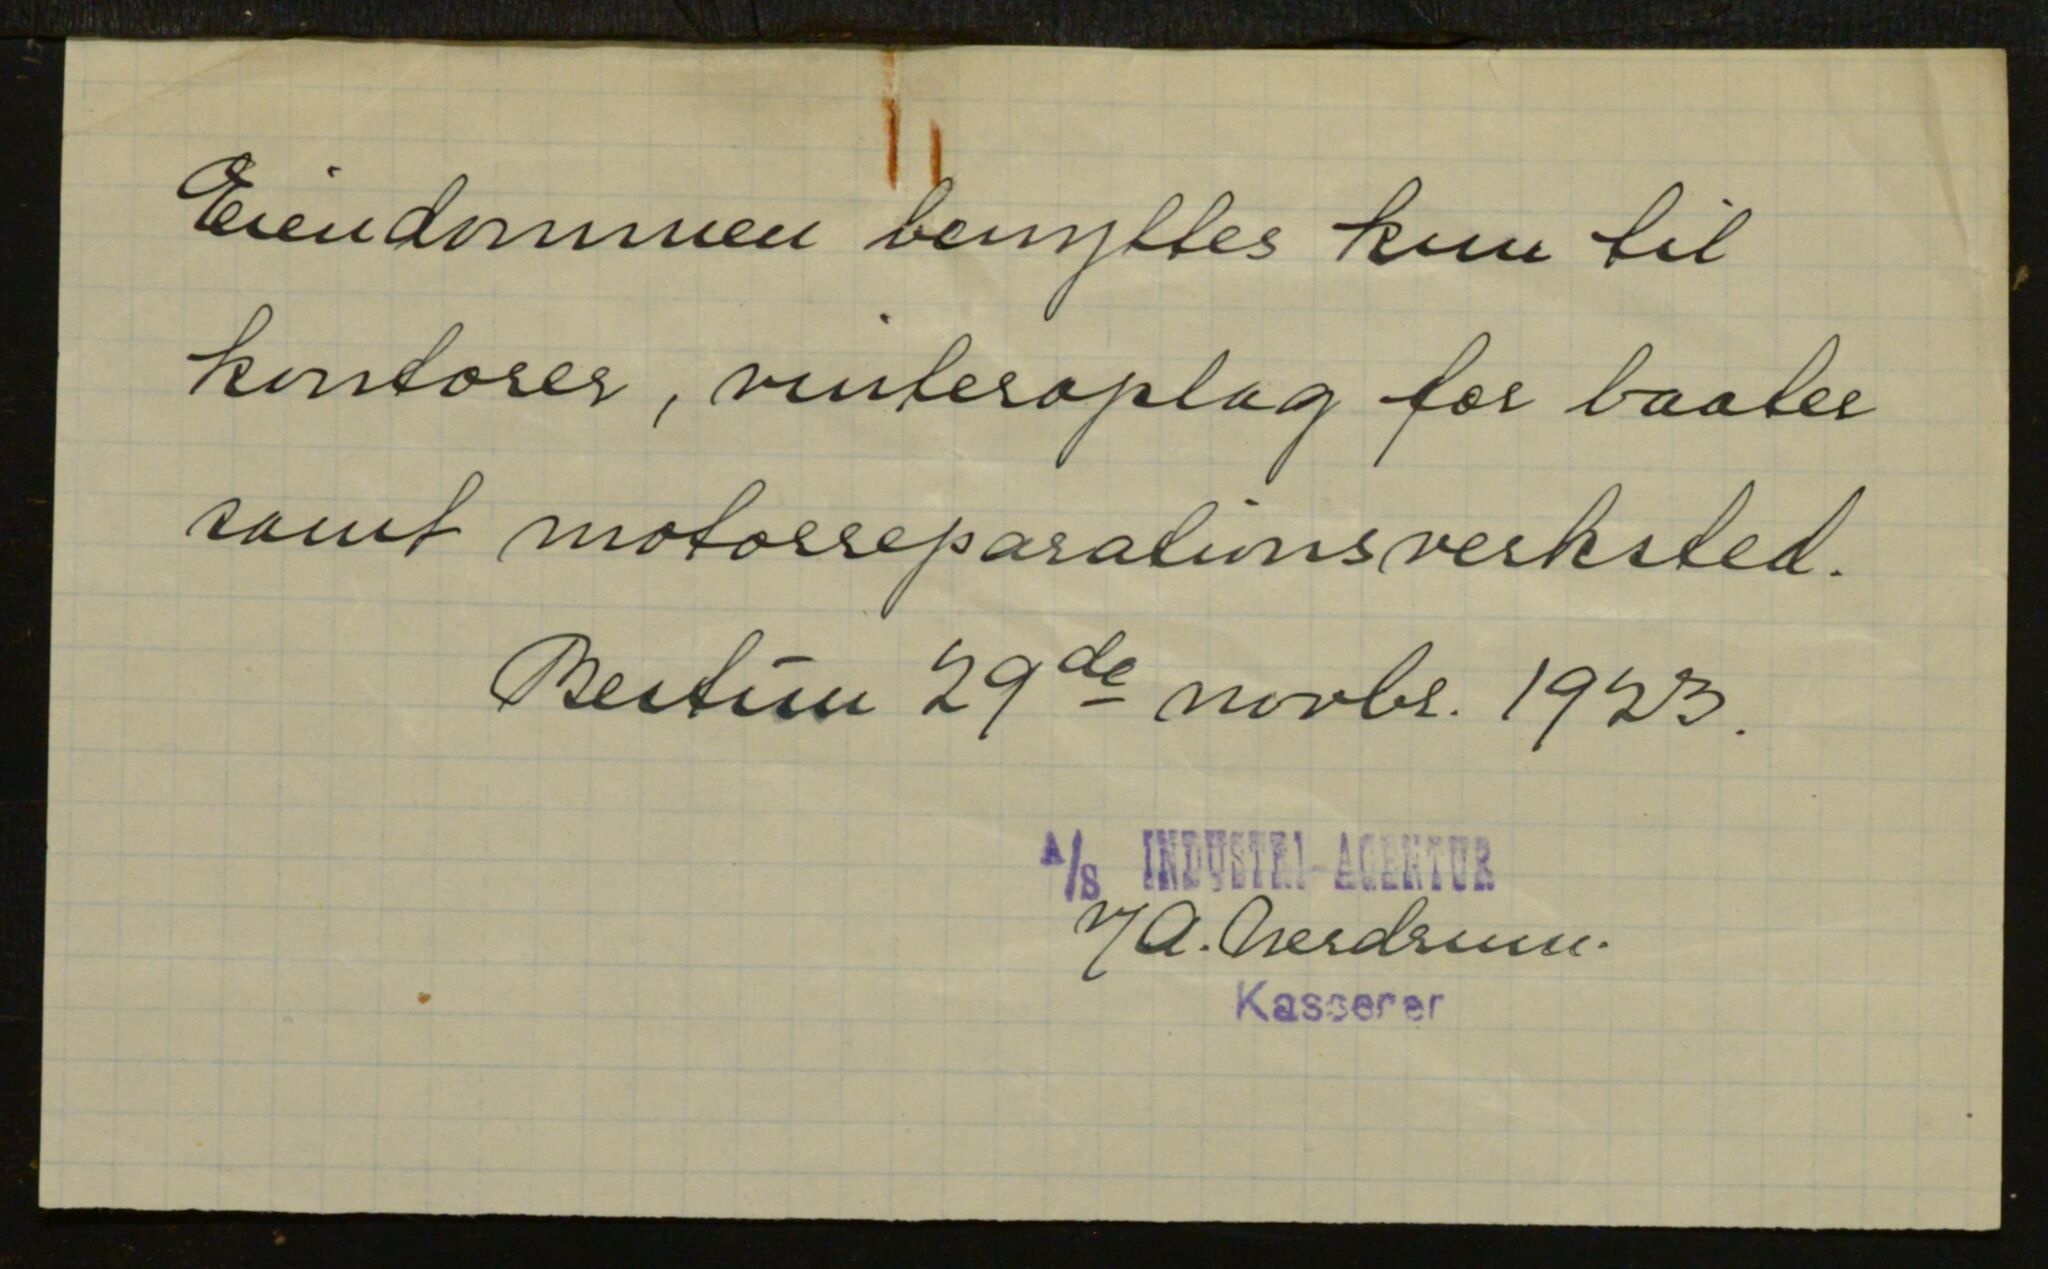 Eiendommen benyttes kun til
kontorer, vinteroplag for baater
samt motorreparationsverksted.
Bestum 29de novbr. 1923.
A/S INDUSTRI-AGENTUR
v/ A. Nerdrum.
Kasserer